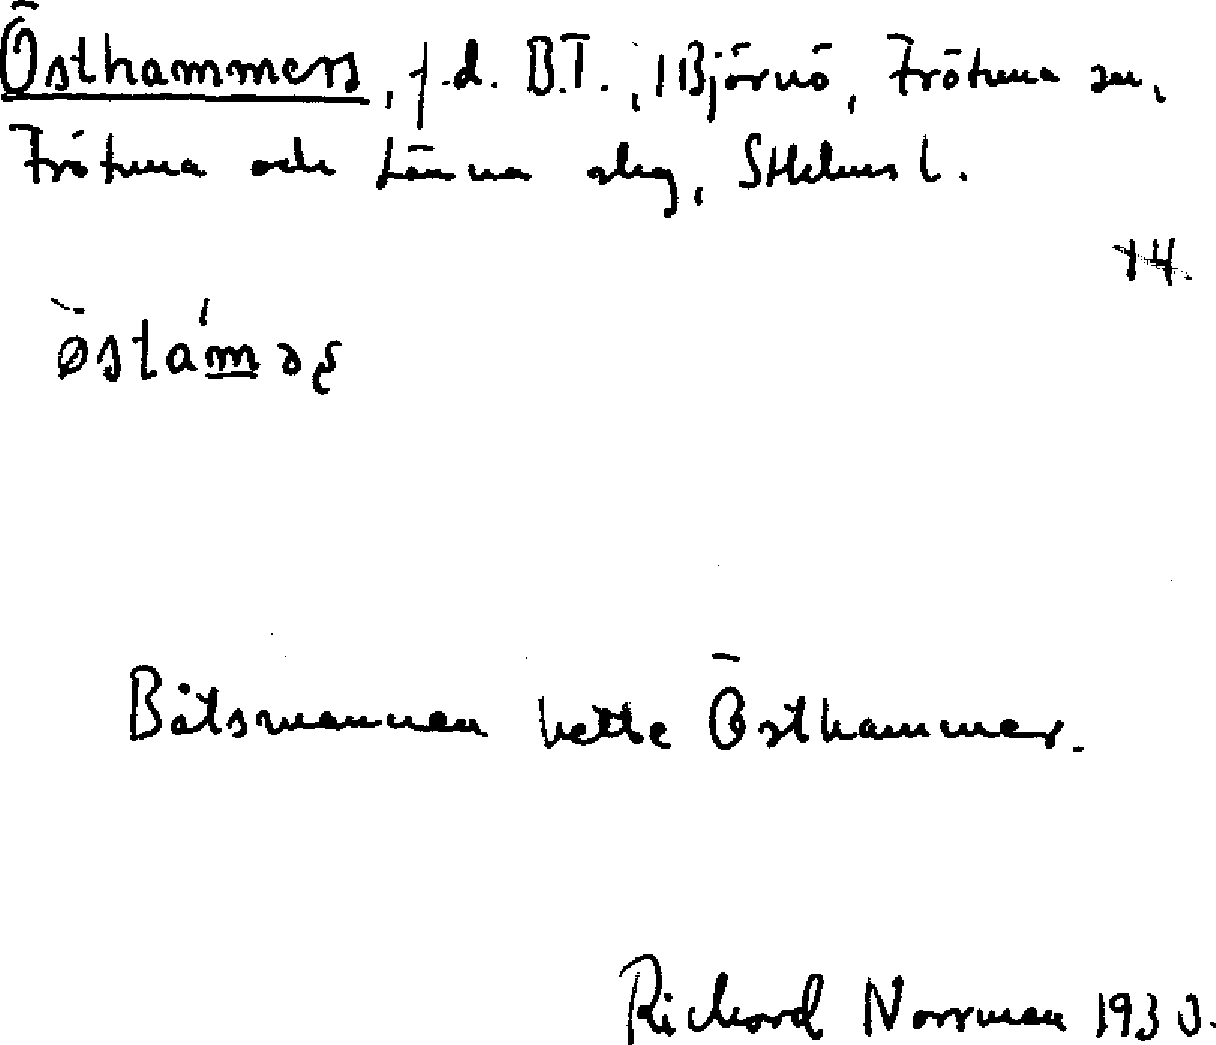 Östhammers, f.d. B.T., 1 Björnö, Frötuna sn,
Frötuna och Länna slg, Sthlms l.
14.
Båtsmannen hette Östhammer.
Richard Norrman 1930.